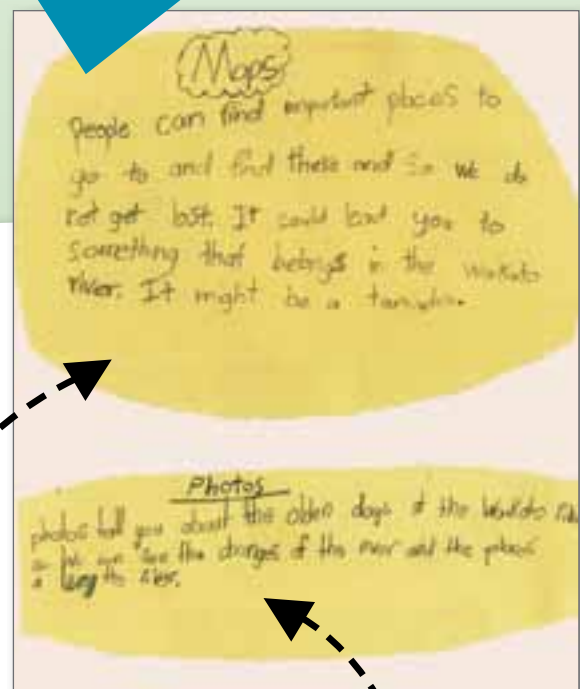 Maps
People can find important places to
go to and find these and so we do
not get lost. It could lead you to
something that belongs in the Waikato
river. It might be a taniwha.
Photos
photos tell you about the olden days of the Waikato
we can see the changes of the river and the places
along the river.